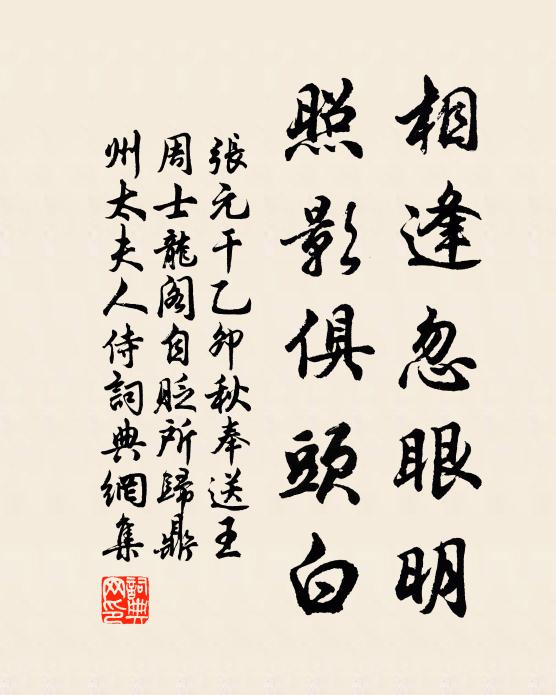 相逢忽眼明
照影俱頭白
張元干乙卯秋奉送王
周士龍阁自貶所歸鼎
州太夫人侍詞典網集
詞典网印